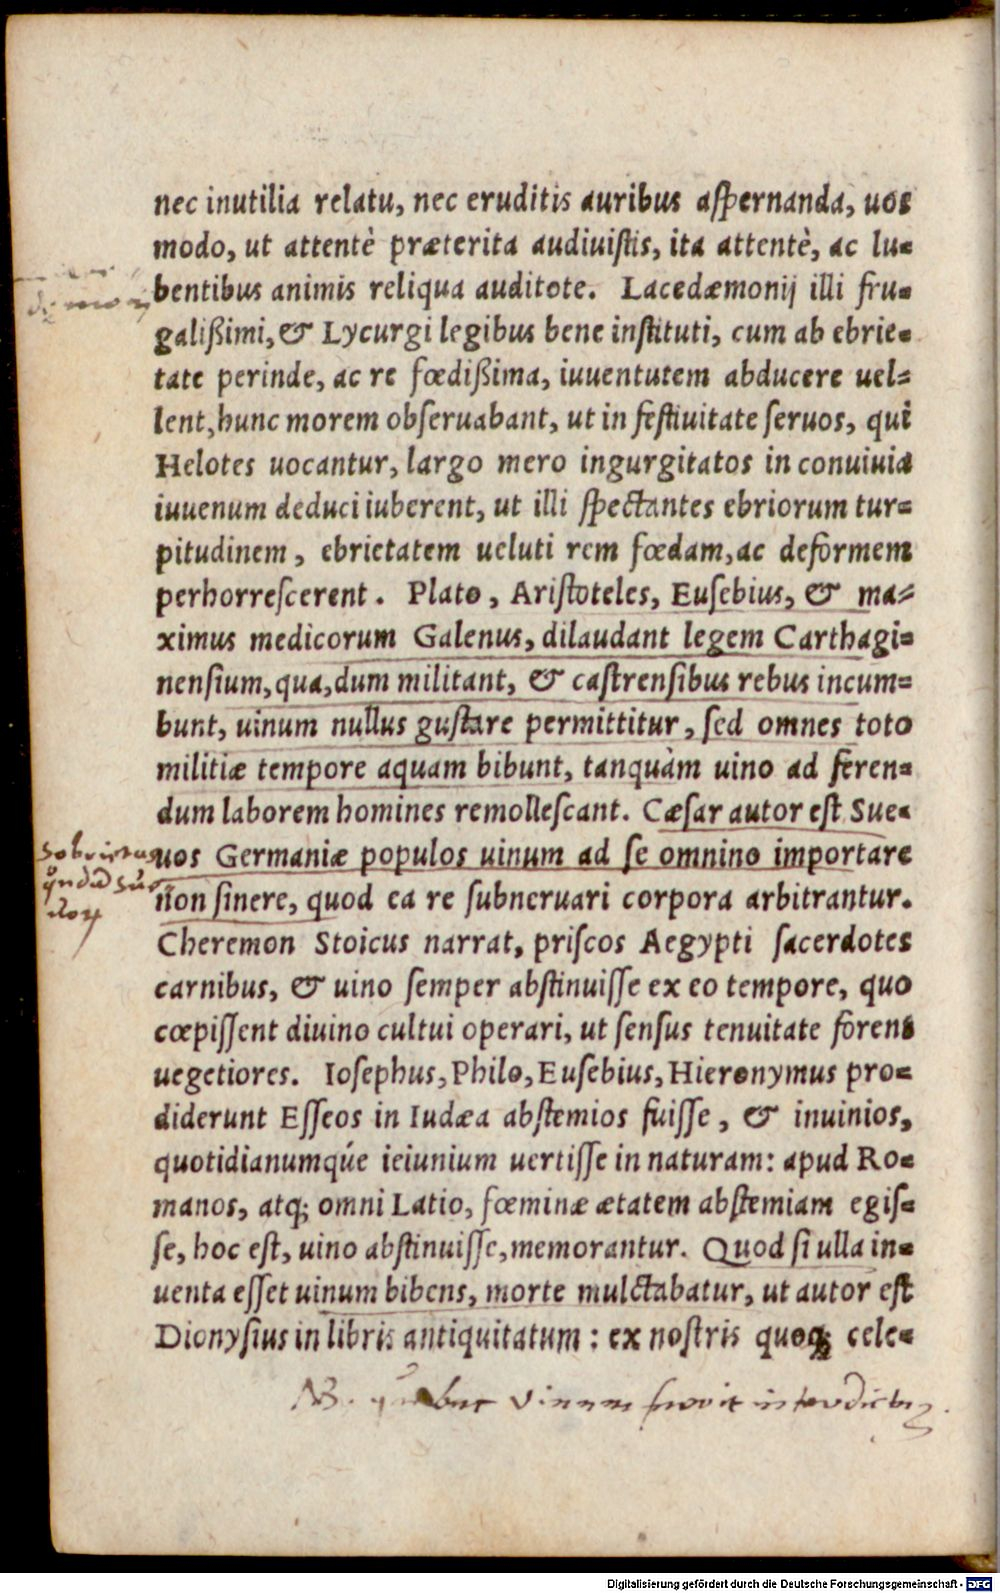 nec inutilia relatu, nec eruditis auribus aspernanda, uos
modo, ut attentè præterita audiuistis, ita attentè, ac lu-
bentibus animis reliqua auditote. Lacedæmonij illi fru-
galißimi, & Lycurgi legibus bene instituti, cum ab ebrie-
tate perinde, ac re fœdißima, iuuentutem abducere uel-
lent, hunc morem obseruabant, ut in festiuitate seruos, qui
Helotes uocantur, largo mero ingurgitatos in conuiuia
iuuenum deduci iuberent, ut illi spectantes ebriorum tur-
pitudinem, ebrietatem ueluti rem fœdam, ac deformem
perhorrescerent. Plato, Aristoteles, Eusebius, & ma-
ximus medicorum Galenus, dilaudant legem Carthagi-
nensium, qua, dum militant, & castrensibus rebus incum-
bunt, uinum nullus gustare permittitur, sed omnes toto
militiæ tempore aquam bibunt, tanquàm uino ad feren-
dum laborem homines remollescant. Cæsar autor est Sue-
uos Germaniæ populos uinum ad se omnino importare
non sinere, quod ea re subneruari corpora arbitrantur.
Cheremon Stoicus narrat, priscos Aegypti sacerdotes
carnibus, & uino semper abstinuisse ex eo tempore, quo
cœpissent diuino cultui operari, ut sensus tenuitate forent
uegetiores. Iosephus, Philo, Eusebius, Hieronymus pro-
diderunt Esseos in Iudæa abstemios fuisse, & inuinios,
quotidianumqúe ieiunium uertisse in naturam: apud Ro-
manos, atq; omni Latio, fœminæ ætatem abstemiam egis-
se, hoc est, uino abstinuisse, memorantur. Quod si ulla in-
uenta esset uinum bibens, morte mulctabatur, ut autor est
Dionysius in libris antiquitatum: ex nostris quoq; cele-
Sobrietas
NB. vinum interdictu
Digitalisierung gefördert durch die Deutsche Forschungsgemeinschaft - DFG